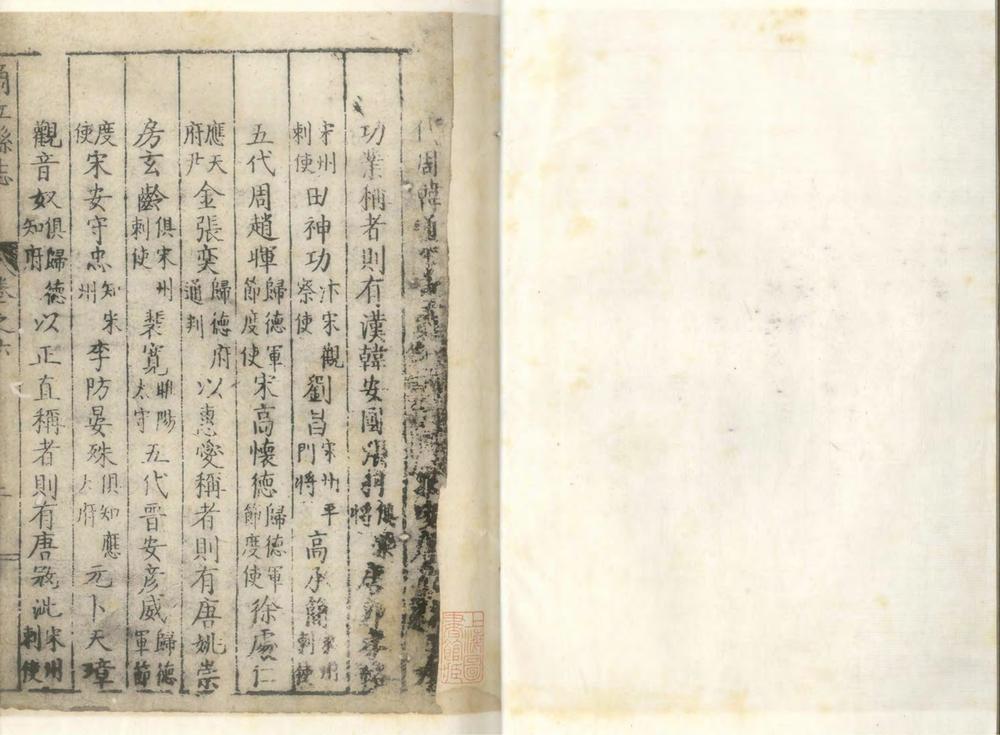 代周韓通
功業稱者則有漢韓安國張羽俱梁將唐郭
宋州刺使田神功汴宋觀察使劉昌宋州牙門將高承簡宋州刺使
五代周趙暉歸德軍節度使宋高懷德歸德軍節度使徐處仁
應天府尹金張奕歸德府通判以惠愛稱者則有唐姚崇
房玄齡俱宋州刺使裴寬睢陽太守五代晉安彥威歸德軍節
度使宋安守忠知宋州李防晏殊俱知應天府元卜天璋
觀音奴俱歸德知府以正直稱者則有唐宋州刺使
商丘縣志 卷之六 二
上海圖書館藏